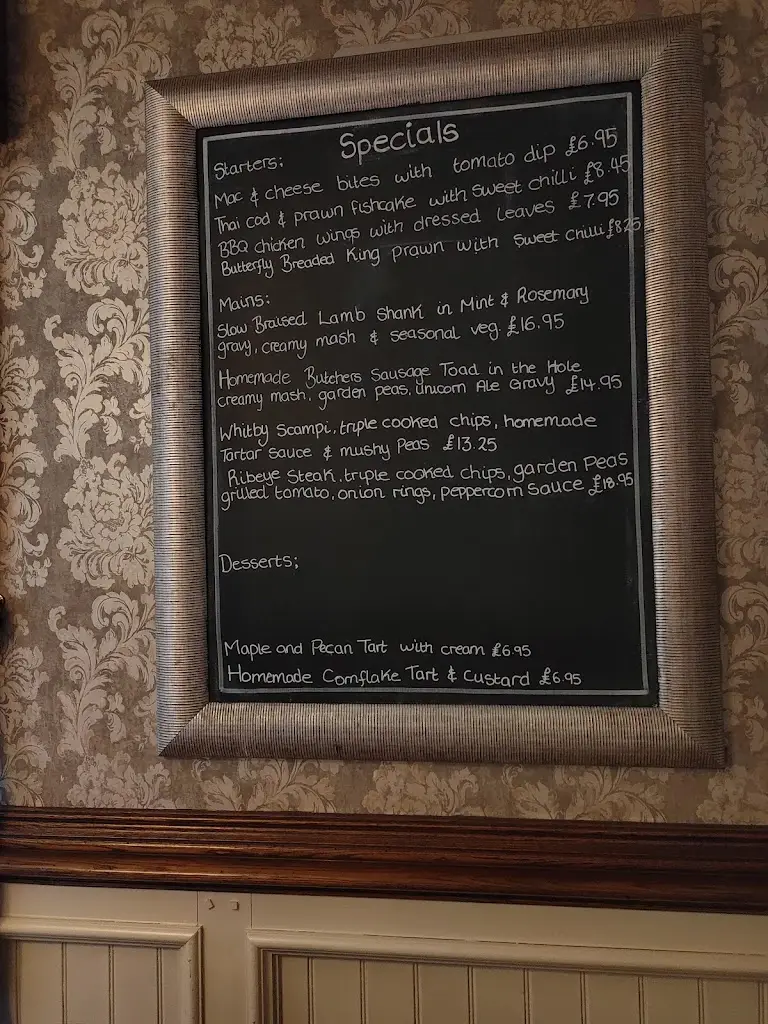 Specials
Starters;
Mac & cheese bites with tomato dip £6.95
Thai cod & prawn fishcake with sweet chilli £8.45
BBQ chicken wings with dressed leaves £7.95
Butterfly Breaded King prawn with sweet chilli £8.25
Mains:
Slow Braised Lamb Shank in Mint & Rosemary
gravy, creamy mash & seasonal veg. £16.95
Homemade Butchers Sausage Toad in the Hole
creamy mash, garden peas, unicorn Ale Gravy £14.95
Whitby Scampi, triple cooked chips, homemade
Tartar Sauce & mushy Peas £13.25
Ribeye Steak, triple cooked chips, garden Peas
grilled tomato, onion rings, peppercorn Sauce £18.95
Desserts;
Maple and Pecan Tart with cream £6.95
Homemade Cornflake Tart & Custard £6.95